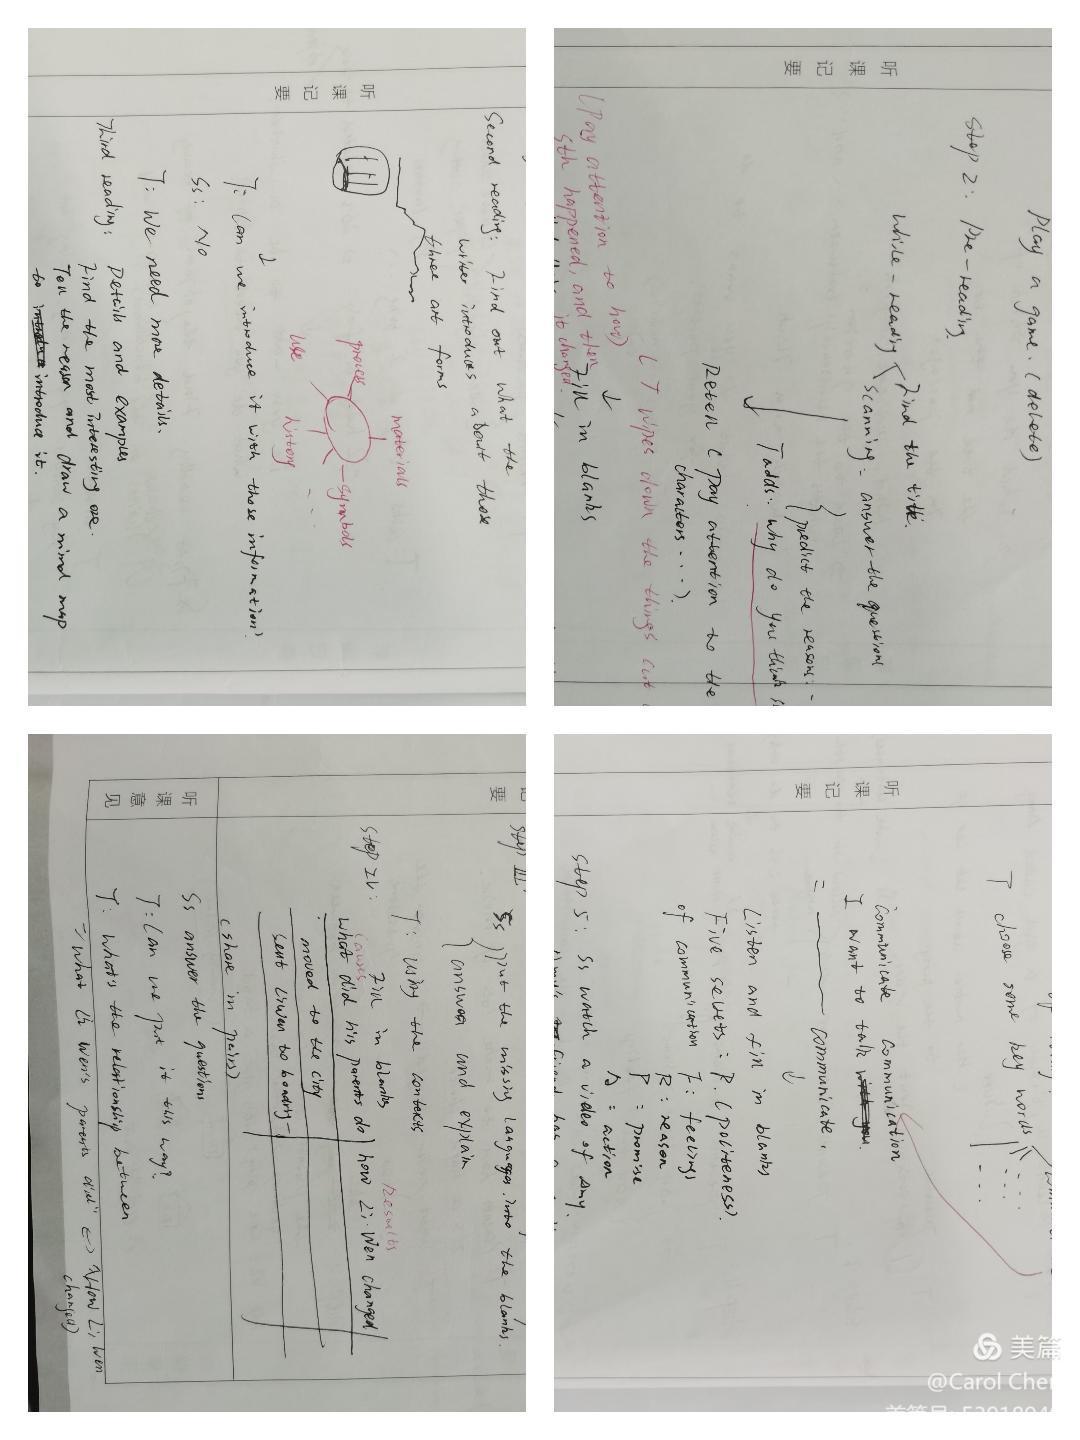 听课记要
Second reading: Find out what the
writer introduces about those
three art forms
process
materials
use
history
symbols
. . .
T: Can we introduce it with those information?
Ss: No
T: We need more details.
Third reading: Details and examples
Find the most interesting one.
Tell the reason and draw a mind map
to introduce it.
听课记要
Play a game. (delete)
Step 2: Pre-reading
While-reading
Find the title.
Scanning: answer the questions
predict the reasons:
T adds: why do you think
Retell (Pay attention to the
characters . . .).
(T wipes down the things
Fill in blanks
(Pay attention to how)
sth happened, and then
it changed.
记要
Step III:
Ss
put the missing languages into the blanks.
answer and explain
T: using the contexts
Step IV: Fill in blanks
causes
Results
What did his parents do
how Li Wen changed
moved to the city
sent Liwen to boarding-
(share in pairs)
听课意见
Ss answer the questions
T: Can we put it this way?
T: What's the relationship between
"What Li Wen's parents did" ↔ "How Li Wen
changed)
听课记要
T choose some key words
. . .
. . .
Communicate communication
I want to talk
= communicate.
Listen and fill in blanks
Five secrets: P. (politeness).
of communication F: feelings
R: reason
P: promise
A: action
Step 5: Ss watch a video of Amy.
美篇
@Carol Chen